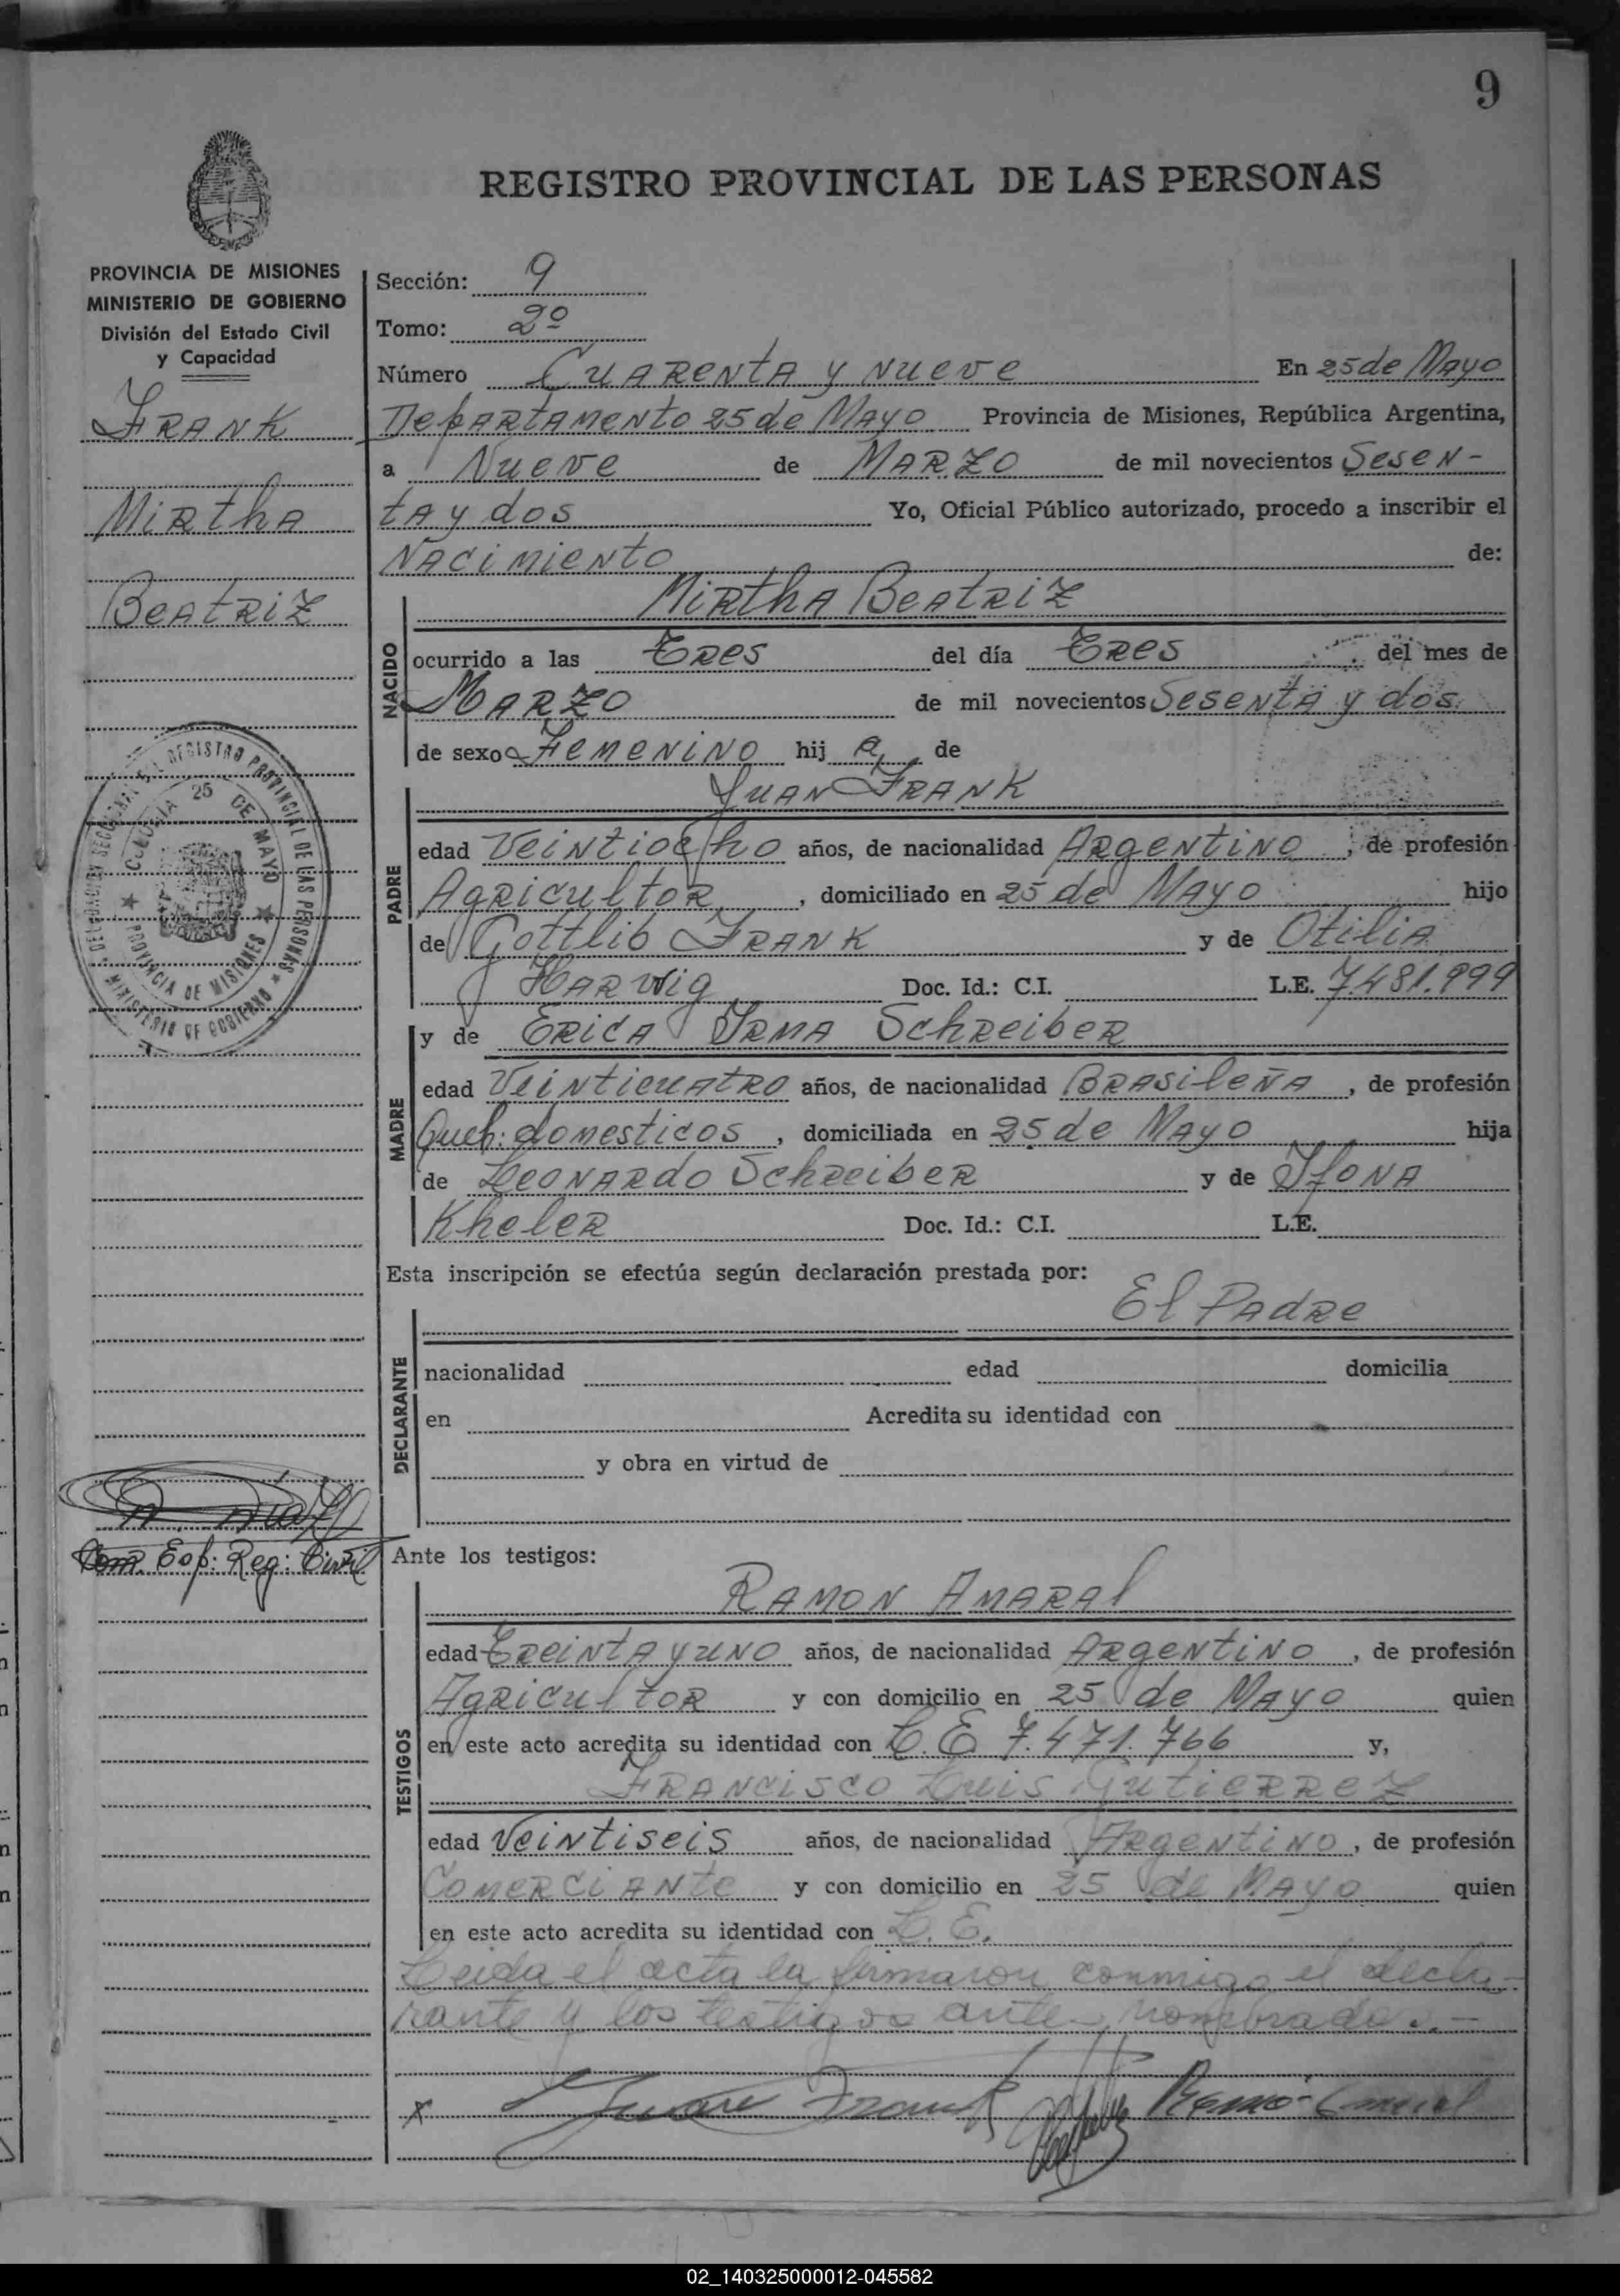 9
REGISTRO PROVINCIAL DE LAS PERSONAS
PROVINCIA DE MISIONES
MINISTERIO DE GOBIERNO
División del Estado Civil
y Capacidad
FRANK
Mirtha
Beatriz
DELEGACION SECCIONAL DEL REGISTRO PROVINCIAL DE LAS PERSONAS
MINISTERIO DE GOBIERNO
COLONIA 25 DE MAYO
PROVINCIA DE MISIONES
Com. Esp: Reg: Civil
Sección: 9
Tomo: 2º
Número Cuarenta y nueve En 25 de Mayo
Departamento 25 de Mayo Provincia de Misiones, República Argentina,
a Nueve de Marzo de mil novecientos Sesen-
ta y dos Yo, Oficial Público autorizado, procedo a inscribir el
Nacimiento de:
NACIDO
Mirtha Beatriz
ocurrido a las Tres del día Tres del mes de
Marzo de mil novecientos Sesenta y dos
de sexo Femenino hij a de
PADRE
Juan Frank
edad Veintiocho años, de nacionalidad Argentino, de profesión
Agricultor, domiciliado en 25 de Mayo hijo
de Gottlib Frank y de Otilia
Harwig Doc. Id.: C.I. L.E. 7.481.999
MADRE
y de Erica Irma Schreiber
edad Veinticuatro años, de nacionalidad Brasileña, de profesión
Queh: domesticos, domiciliada en 25 de Mayo hija
de Leonardo Schreiber y de Ifona
Kheler Doc. Id.: C.I. L.E.
Esta inscripción se efectúa según declaración prestada por:
El Padre
DECLARANTE
nacionalidad edad domicilia
en Acredita su identidad con
y obra en virtud de
Ante los testigos:
TESTIGOS
Ramon Amaral
edad Treinta y uno años, de nacionalidad Argentino, de profesión
Agricultor y con domicilio en 25 de Mayo quien
en este acto acredita su identidad con L.E. 7.471.766 y,
Francisco Luis Gutierrez
edad Veintiseis años, de nacionalidad Argentino, de profesión
Comerciante y con domicilio en 25 de Mayo quien
en este acto acredita su identidad con L.E.
Leida el acta la firmaron conmigo el decla-
rante y los testigos ante nombrados.-
x Juan Frank
02_140325000012-045582